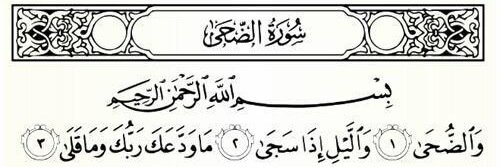 سُورَةُ الضُّحَىٰ
بِسْمِ اللَّهِ الرَّحْمَٰنِ الرَّحِيمِ
وَالضُّحَىٰ ١ وَالَّيْلِ إِذَا سَجَىٰ ٢ مَا وَدَّعَكَ رَبُّكَ وَمَا قَلَىٰ ٣